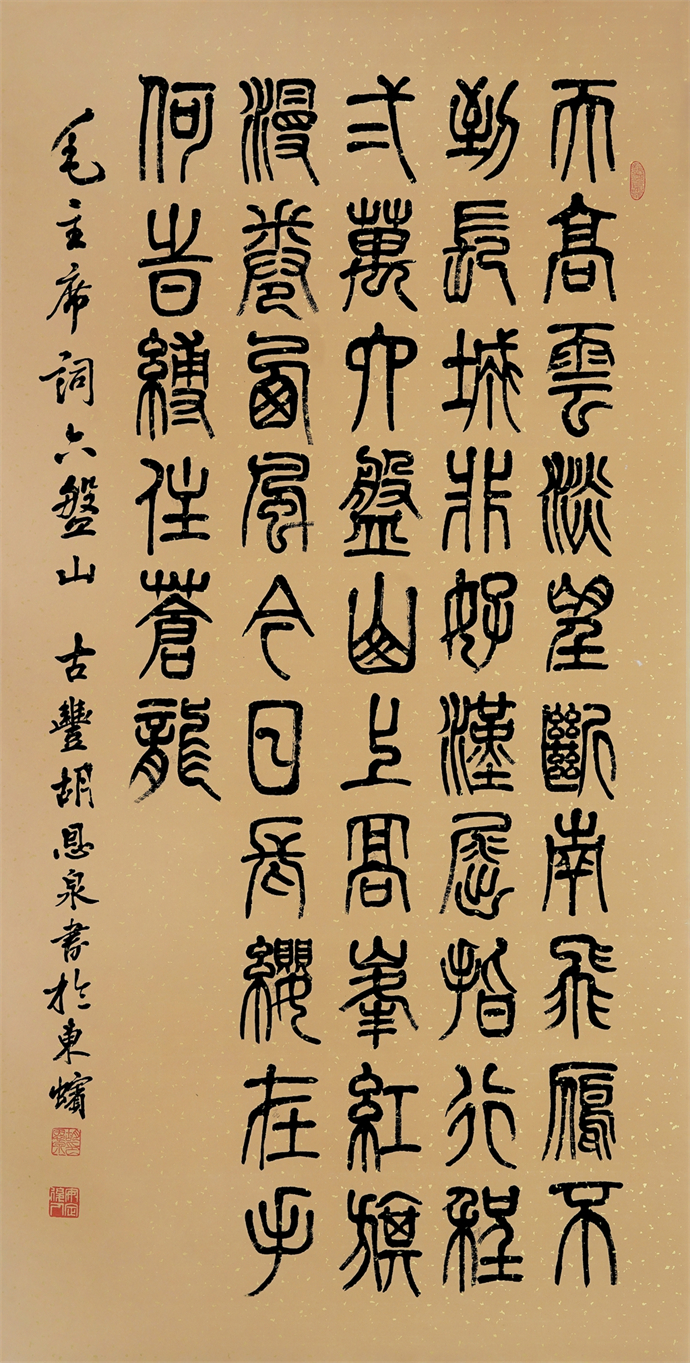 天高雲淡望斷南飛雁不
到長城非好漢屈指行程
弍萬六盤山上高峯紅旗
漫卷西風今日長纓在手
何旹縛住蒼龍
毛主席詞六盤山 古豐胡恩泉書於東